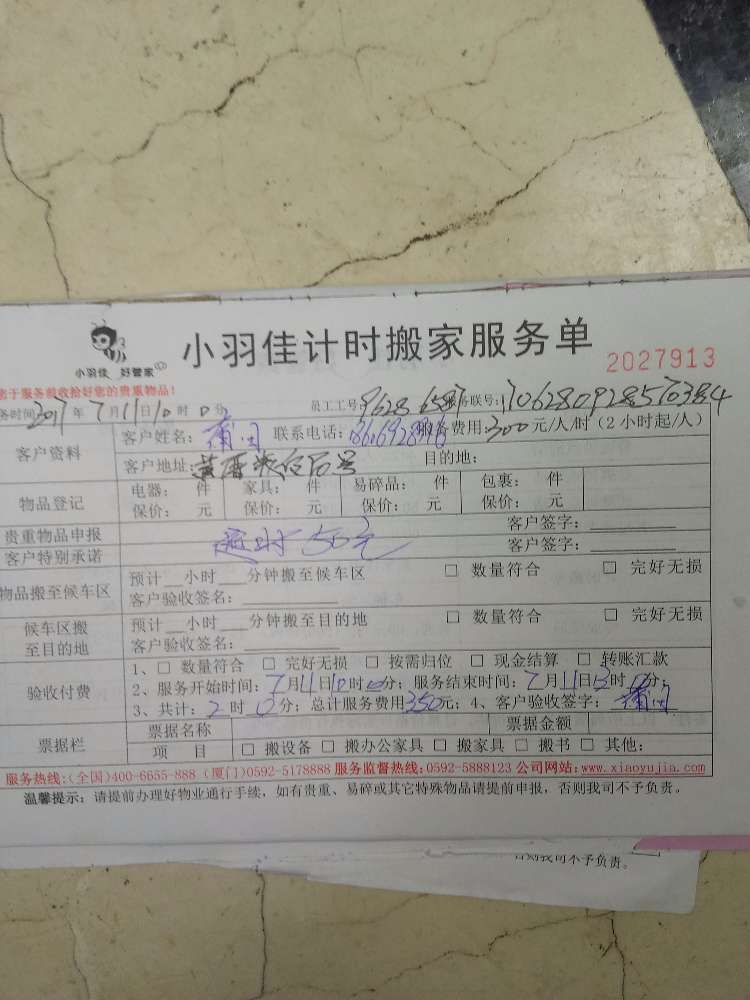 小羽佳 好管家
小羽佳计时搬家服务单
2027913
您于服务前收拾好您的贵重物品!
务时间2017年7月11日10时0分 员工工号: 务联号:
客户资料 客户姓名: 联系电话: 服务费用:300元/人/时(2小时起/人)
客户地址: 目的地:
物品登记 电器: 件 家具: 件 易碎品: 件 包裹: 件
保价: 元 保价: 元 保价: 元 保价: 元
贵重物品申报 客户签字:
客户特别承诺 超时50元 客户签字:
物品搬至候车区 预计__小时___分钟搬至候车区 □ 数量符合 □ 完好无损
客户验收签名:
候车区搬至目的地 预计__小时___分钟搬至目的地 □ 数量符合 □ 完好无损
客户验收签名:
验收付费 1、□ 数量符合 □ 完好无损 □ 按需归位 □ 现金结算 □ 转账汇款
2、服务开始时间:7月11日10时 分; 服务结束时间:7月11日 时 分;
3、共计:2时0分; 总计服务费用350元; 4、客户验收签字:
票据栏 票据名称 票据金额
项 目 □ 搬设备 □ 搬办公家具 □ 搬家具 □ 搬书 □ 其他:
服务热线:(全国)400-6655-888 (厦门)0592-5178888 服务监督热线:0592-5888123 公司网站:www.xiaoyujia.com
温馨提示: 请提前办理好物业通行手续,如有贵重、易碎或其它特殊物品请提前申报,否则我司不予负责。
否则我司不予负责。